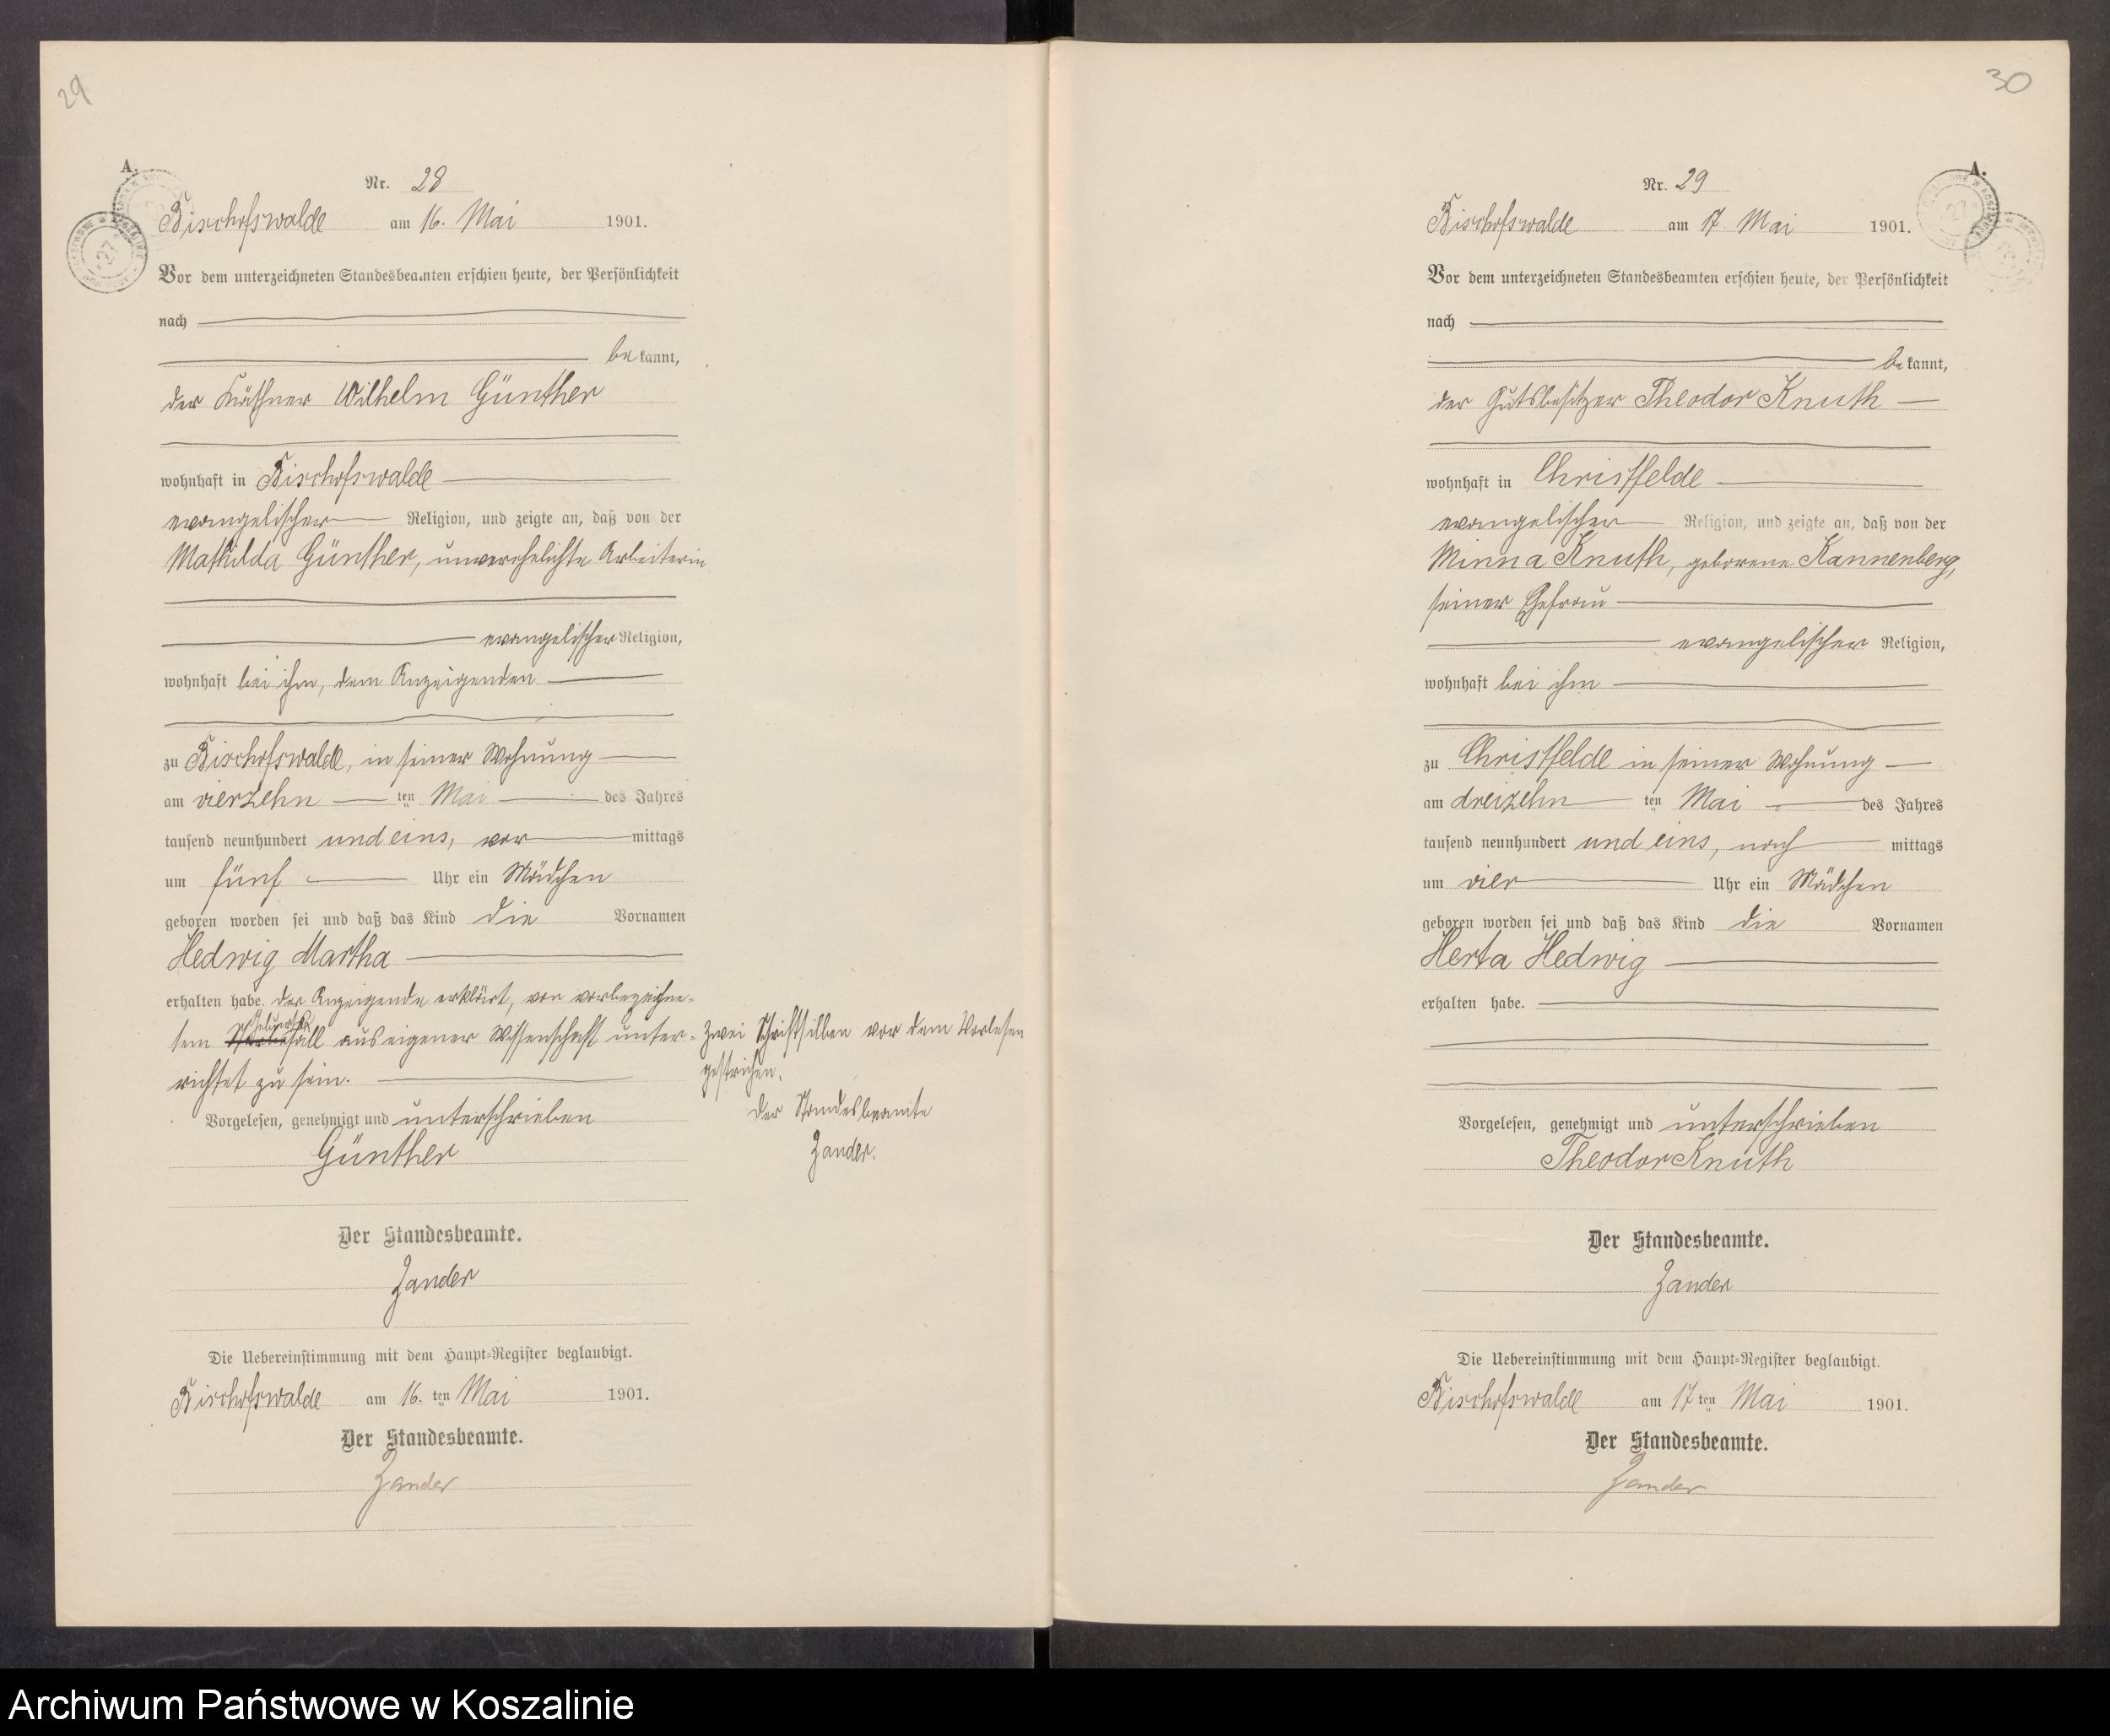 29
A.
Nr. 28
Bischofswalde am 16. Mai 1901.
Vor dem unterzeichneten Standesbeamten erschien heute, der Persönlichkeit
nach
be kannt,
der Käthner Wilhelm Günther
wohnhaft in Bischofswalde
evangelischer Religion, und zeigte an, daß von der
Mathilda Günther, unverehelichte Arbeiterin
evangelischer Religion,
wohnhaft bei ihm, dem Anzeigenden
zu Bischofswalde, in seiner Wohnung
am vierzehn ten Mai des Jahres
tausend neunhundert und eins, vor mittags
um fünf Uhr ein Mädchen
geboren worden sei und daß das Kind die Vornamen
Hedwig Martha
erhalten habe. Der Anzeigende erklärt, von vorbezeichne-
Geburts
tem Sterbefall aus eigener Wissenschaft unter-
richtet zu sein.
Vorgelesen, genehmigt und unterschrieben
Günther
Der Standesbeamte.
Zander
Die Uebereinstimmung mit dem Haupt-Register beglaubigt.
Bischofswalde am 16. ten Mai 1901.
Der Standesbeamte.
Zander
Zwei Schriftsilben vor dem Vorlesen
gestrichen.
Der Standesbeamte
Zander.
30
A.
Nr. 29
Bischofswalde am 17. Mai 1901.
Vor dem unterzeichneten Standesbeamten erschien heute, der Persönlichkeit
nach
be kannt,
der Gutsbesitzer Theodor Knuth
wohnhaft in Christfelde
evangelischer Religion, und zeigte an, daß von der
Minna Knuth, geborene Kannenberg,
seiner Ehefrau
evangelischer Religion,
wohnhaft bei ihm
zu Christfelde in seiner Wohnung
am dreizehn ten Mai des Jahres
tausend neunhundert und eins, nach mittags
um vier Uhr ein Mädchen
geboren worden sei und daß das Kind die Vornamen
Herta Hedwig
erhalten habe.
Vorgelesen, genehmigt und unterschrieben
Theodor Knuth
Der Standesbeamte.
Zander
Die Uebereinstimmung mit dem Haupt-Register beglaubigt.
Bischofswalde am 17 ten Mai 1901.
Der Standesbeamte.
Zander
Archiwum Państwowe w Koszalinie